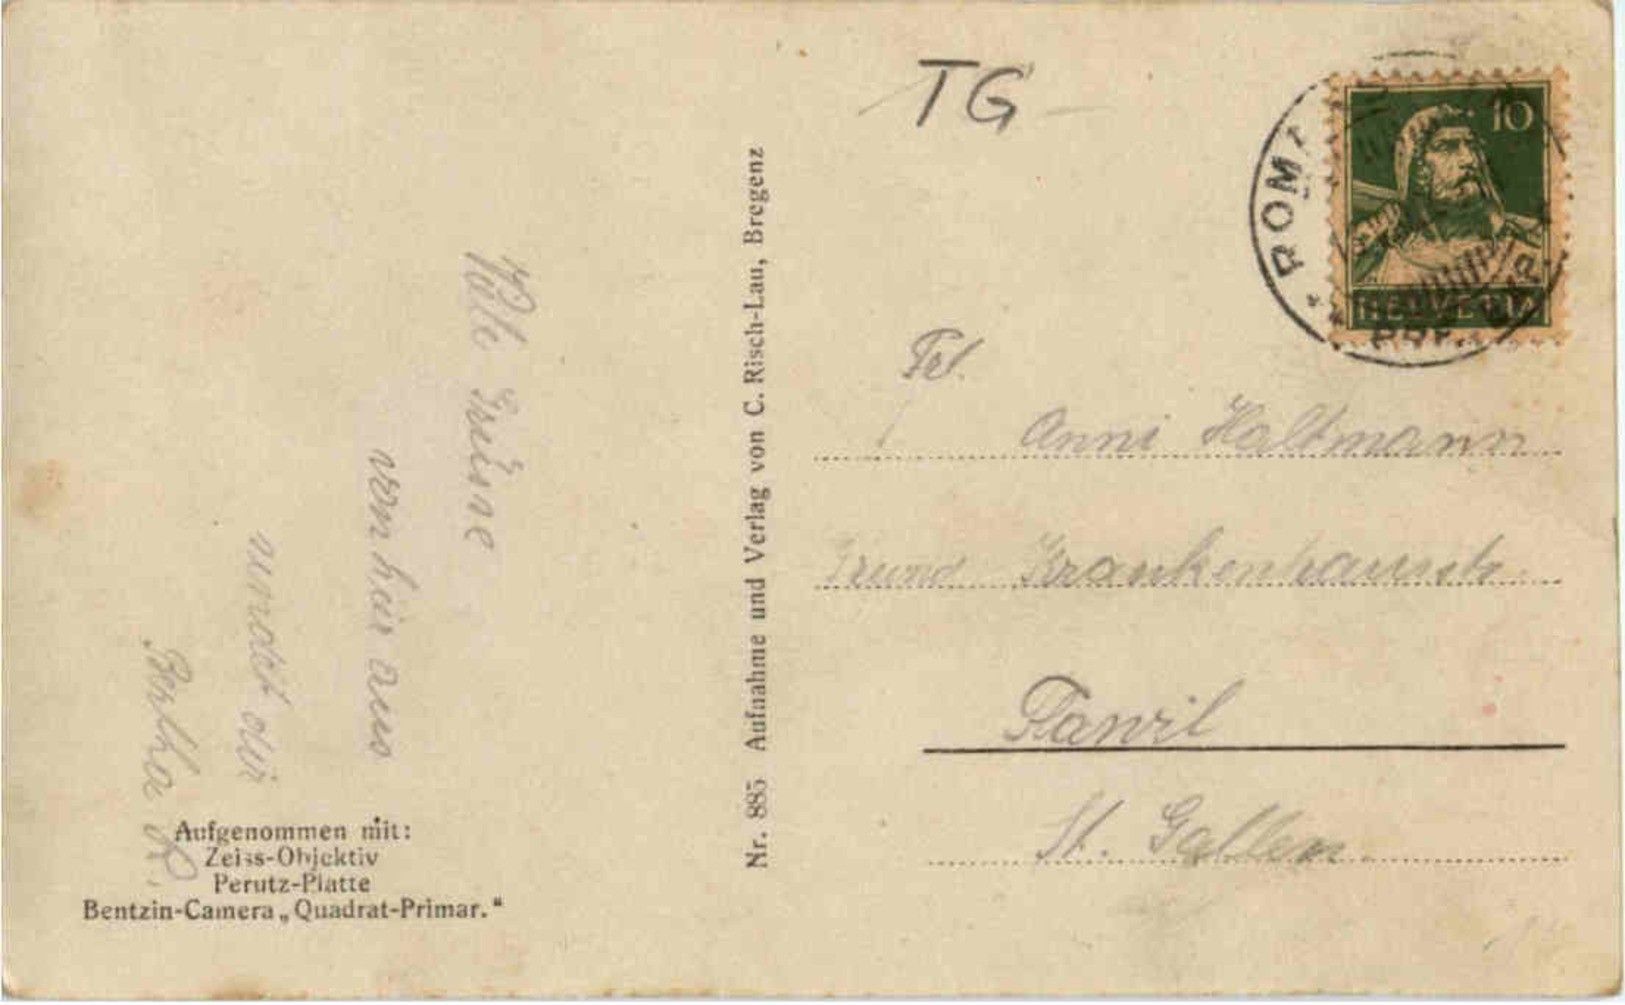 TG
10
HELVETIA
ROMA
Frl.
Anni Haltmann
Grund Krankenhaus
Flawil
St. Gallen.
Nr. 885 Aufnahme und Verlag von C. Risch-Lau, Bregenz
Viele Grüsse
von hier aus
sendet dir
Bertha R.
Aufgenommen mit:
Zeiss-Objektiv
Perutz-Platte
Bentzin-Camera „Quadrat-Primar.“